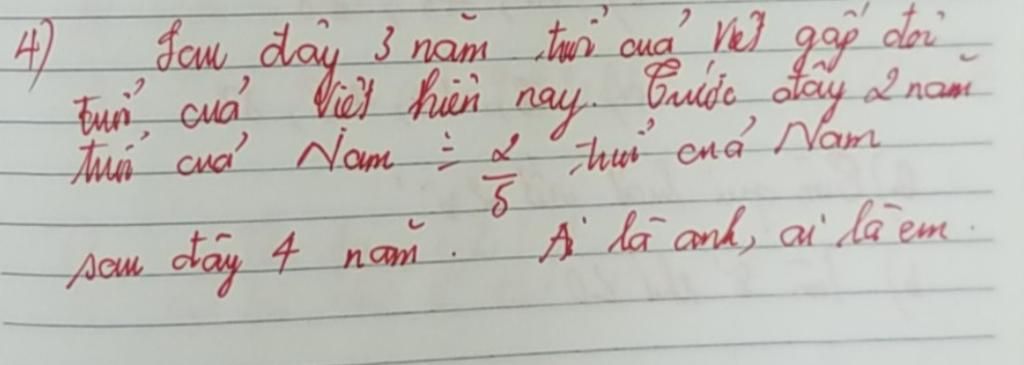 4) Sau đây 3 năm tuổi của Việt gấp đôi
tuổi của Việt hiện nay. Trước đây 2 năm
tuổi của Nam = 2/5 tuổi của Nam
sau đây 4 năm. Ai là anh, ai là em.